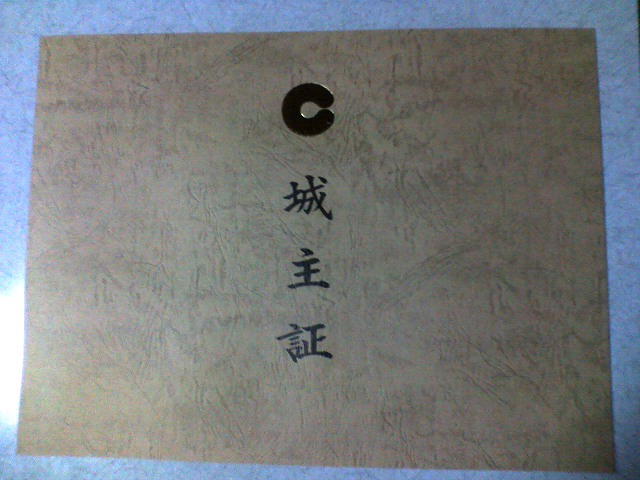 城主証